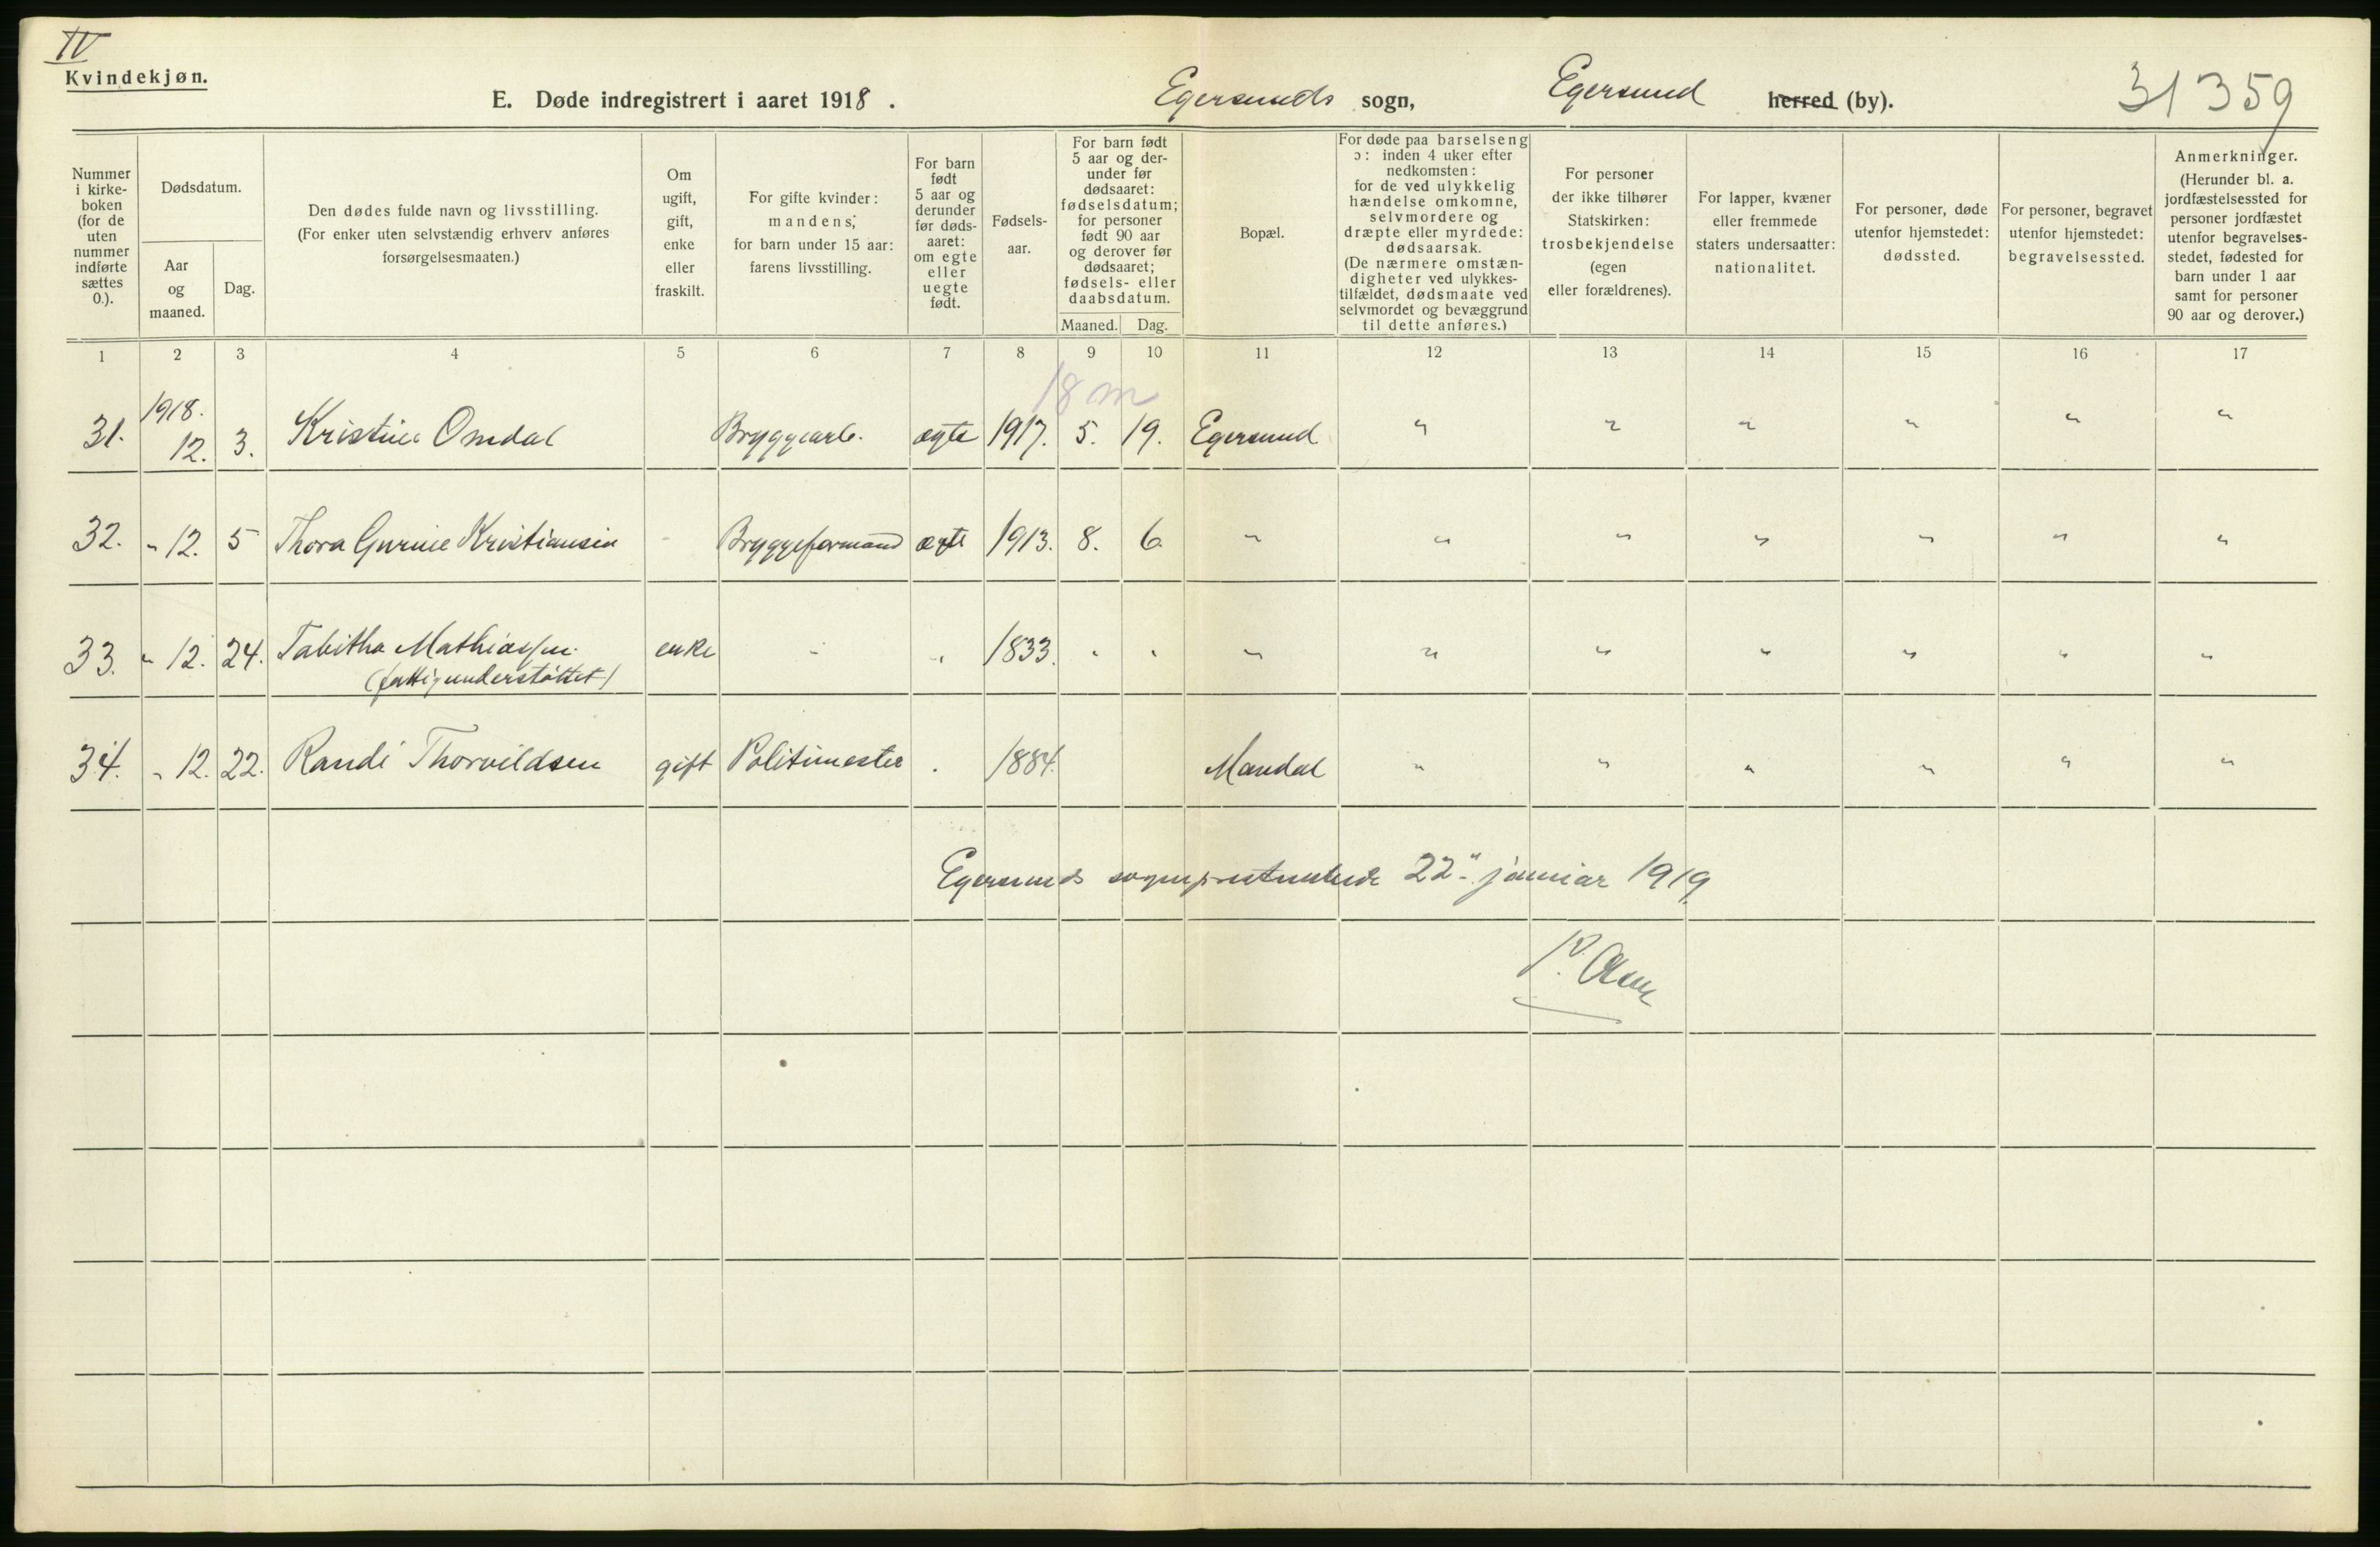 IV
Kvindekjøn.
E. Døde indregistrert i aaret 1918.
Egersunds sogn,
Egersund herred (by).
31 359
Nummer i kirke-boken (for de uten nummer indførte sættes 0.).
Dødsdatum.
Aar og maaned.
Dag.
Den dødes fulde navn og livsstilling.
(For enker uten selvstændig erhverv anføres forsørgelsesmaaten.)
Om ugift, gift, enke eller fraskilt.
For gifte kvinder: mandens; for barn under 15 aar: farens livsstilling.
For barn født 5 aar og derunder før døds-aaret: om egte eller uegte født.
Fødsels-aar.
For barn født 5 aar og der-under før dødsaaret: fødselsdatum; for personer født 90 aar og derover før dødsaaret; fødsels- eller daabsdatum.
Maaned. Dag.
Bopæl.
For døde paa barselseng ɔ: inden 4 uker efter nedkomsten: for de ved ulykkelig hændelse omkomne, selvmordere og dræpte eller myrdede: dødsaarsak. (De nærmere omstæn-digheter ved ulykkes-tilfældet, dødsmaate ved selvmordet og bevæggrund til dette anføres.)
For personer der ikke tilhører Statskirken: trosbekjendelse (egen eller forældrenes).
For lapper, kvæner eller fremmede staters undersaatter: nationalitet.
For personer, døde utenfor hjemstedet: dødssted.
For personer, begravet utenfor hjemstedet: begravelsessted.
Anmerkninger. (Herunder bl. a. jordfæstelsessted for personer jordfæstet utenfor begravelses-stedet, fødested for barn under 1 aar samt for personer 90 aar og derover.)
1 2 3 4 5 6 7 8 9 10 11 12 13 14 15 16 17
18 m
31. 1918. 12. 3. Kristine Omdal Bryggearb. egte 1917. 5. 19. Egersund " " " " " "
32. " 12. 5 Thora Gurine Kristiansen - Bryggeformand egte 1913. 8. 6. " " " " " " "
33. " 12. 24. Tabitha Mathiassen enke - " 1833. " " " " " " " " "
(fattigunderstøttet)
34. " 12. 22. Randi Thorvildsen gift Politimester . 1884. Mandal " " " " " "
Egersunds sogneprestembede 22" januar 1919
P. Olsen